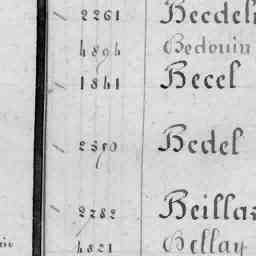 2261 Becdel
4894 Bedouin
1841 Becel
2380 Bedel
2282 Beilla
4821 Bellay